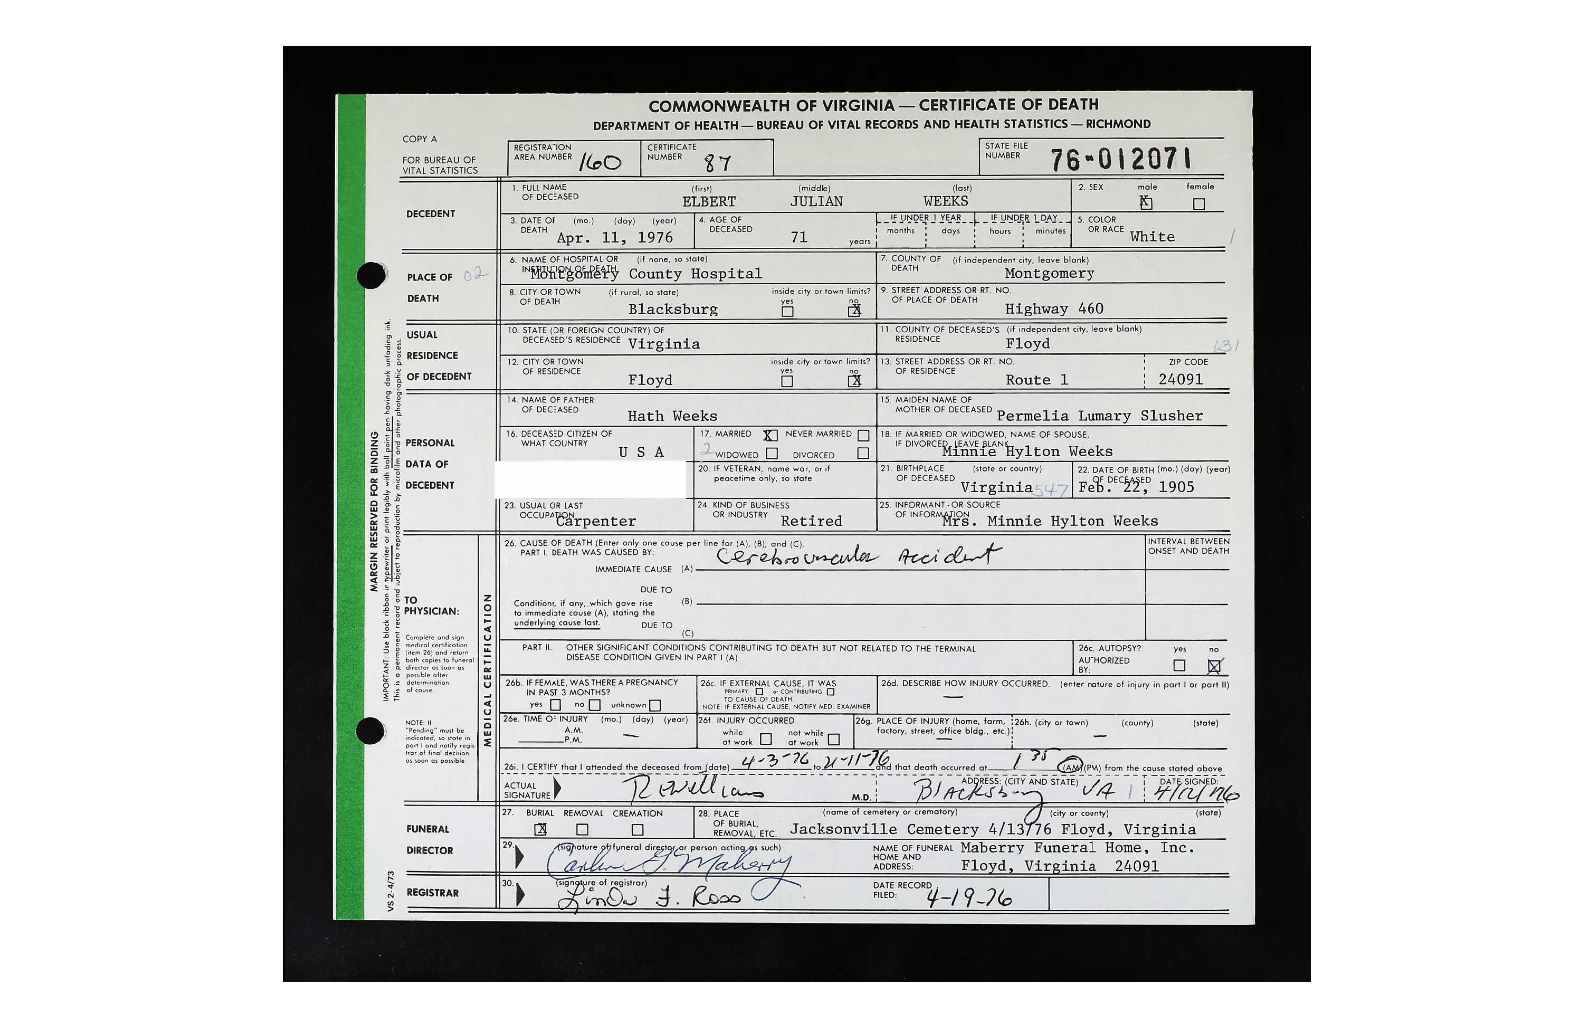 COMMONWEALTH OF VIRGINIA — CERTIFICATE OF DEATH
DEPARTMENT OF HEALTH — BUREAU OF VITAL RECORDS AND HEALTH STATISTICS — RICHMOND
COPY A
FOR BUREAU OF VITAL STATISTICS
REGISTRATION AREA NUMBER 160
CERTIFICATE NUMBER 87
STATE FILE NUMBER 76-012071
DECEDENT
1. FULL NAME OF DECEASED (first) (middle) (last)
ELBERT JULIAN WEEKS
2. SEX male X female
3. DATE OF DEATH (mo.) (day) (year)
Apr. 11, 1976
4. AGE OF DECEASED 71 years
IF UNDER 1 YEAR months days
IF UNDER 1 DAY hours minutes
5. COLOR OR RACE White 1
PLACE OF DEATH 02
6. NAME OF HOSPITAL OR INSTITUTION OF DEATH (if none, so state)
Montgomery County Hospital
7. COUNTY OF DEATH (if independent city, leave blank)
Montgomery
8. CITY OR TOWN OF DEATH (if rural, so state) inside city or town limits? yes no X
Blacksburg
9. STREET ADDRESS OR RT. NO. OF PLACE OF DEATH
Highway 460
USUAL RESIDENCE OF DECEDENT
10. STATE (OR FOREIGN COUNTRY) OF DECEASED'S RESIDENCE Virginia
11. COUNTY OF DECEASED'S RESIDENCE (if independent city, leave blank)
Floyd 131
12. CITY OR TOWN OF RESIDENCE inside city or town limits? yes no X
Floyd
13. STREET ADDRESS OR RT. NO. OF RESIDENCE ZIP CODE
Route 1 24091
PERSONAL DATA OF DECEDENT
14. NAME OF FATHER OF DECEASED
Hath Weeks
15. MAIDEN NAME OF MOTHER OF DECEASED Permelia Lumary Slusher
16. DECEASED CITIZEN OF WHAT COUNTRY
U S A
17. MARRIED X NEVER MARRIED
2 WIDOWED DIVORCED
18. IF MARRIED OR WIDOWED, NAME OF SPOUSE, IF DIVORCED, LEAVE BLANK
Minnie Hylton Weeks
20. IF VETERAN, name war, or if peacetime only, so state
21. BIRTHPLACE OF DECEASED (state or country)
Virginia 547
22. DATE OF BIRTH (mo.) (day) (year) OF DECEASED
Feb. 22, 1905
23. USUAL OR LAST OCCUPATION
Carpenter
24. KIND OF BUSINESS OR INDUSTRY Retired
25. INFORMANT - OR SOURCE OF INFORMATION
Mrs. Minnie Hylton Weeks
MARGIN RESERVED FOR BINDING
IMPORTANT: Use black ribbon in typewriter or print legibly with ball point pen having dark unfading ink.
This is a permanent record and subject to reproduction by microfilm and other photographic process.
TO PHYSICIAN:
Complete and sign medical certification (item 26) and return both copies to funeral director as soon as possible after determination of cause.
NOTE: II "Pending" must be indicated, so state in part I and notify registrar of final decision as soon as possible.
MEDICAL CERTIFICATION
26. CAUSE OF DEATH (Enter only one cause per line for (A), (B), and (C).
PART I. DEATH WAS CAUSED BY:
IMMEDIATE CAUSE (A) Cerebrovascular Accident
INTERVAL BETWEEN ONSET AND DEATH
DUE TO
Conditions, if any, which gave rise to immediate cause (A), stating the underlying cause last.
(B)
DUE TO
(C)
PART II. OTHER SIGNIFICANT CONDITIONS CONTRIBUTING TO DEATH BUT NOT RELATED TO THE TERMINAL DISEASE CONDITION GIVEN IN PART I (A)
26c. AUTOPSY? yes no X
AUTHORIZED BY:
26b. IF FEMALE, WAS THERE A PREGNANCY IN PAST 3 MONTHS?
yes no unknown
26c. IF EXTERNAL CAUSE, IT WAS
PRIMARY or CONTRIBUTING
TO CAUSE OF DEATH
NOTE: IF EXTERNAL CAUSE, NOTIFY MED. EXAMINER
26d. DESCRIBE HOW INJURY OCCURRED. (enter nature of injury in part I or part II)
—
26e. TIME OF INJURY (mo.) (day) (year)
A.M.
P.M. —
26f. INJURY OCCURRED
while at work not while at work
26g. PLACE OF INJURY (home, farm, factory, street, office bldg., etc.)
—
26h. (city or town) (county) (state)
—
26i. I CERTIFY that I attended the deceased from (date) 4-3-76 to 4-11-76 and that death occurred at 1 35 (AM) (PM) from the cause stated above
ACTUAL SIGNATURE R Williams M.D.
ADDRESS: (CITY AND STATE) Blacksburg VA 1
DATE SIGNED: 4/12/76
FUNERAL DIRECTOR
27. BURIAL X REMOVAL CREMATION
28. PLACE OF BURIAL, REMOVAL, ETC. (name of cemetery or crematory) (city or county) (state)
Jacksonville Cemetery 4/13/76 Floyd, Virginia
29. (signature of funeral director or person acting as such)
Carlen G. Maberry
NAME OF FUNERAL HOME AND ADDRESS: Maberry Funeral Home, Inc.
Floyd, Virginia 24091
REGISTRAR
30. (signature of registrar)
Linda F. Ross
DATE RECORD FILED: 4-19-76
VS 2-4/73